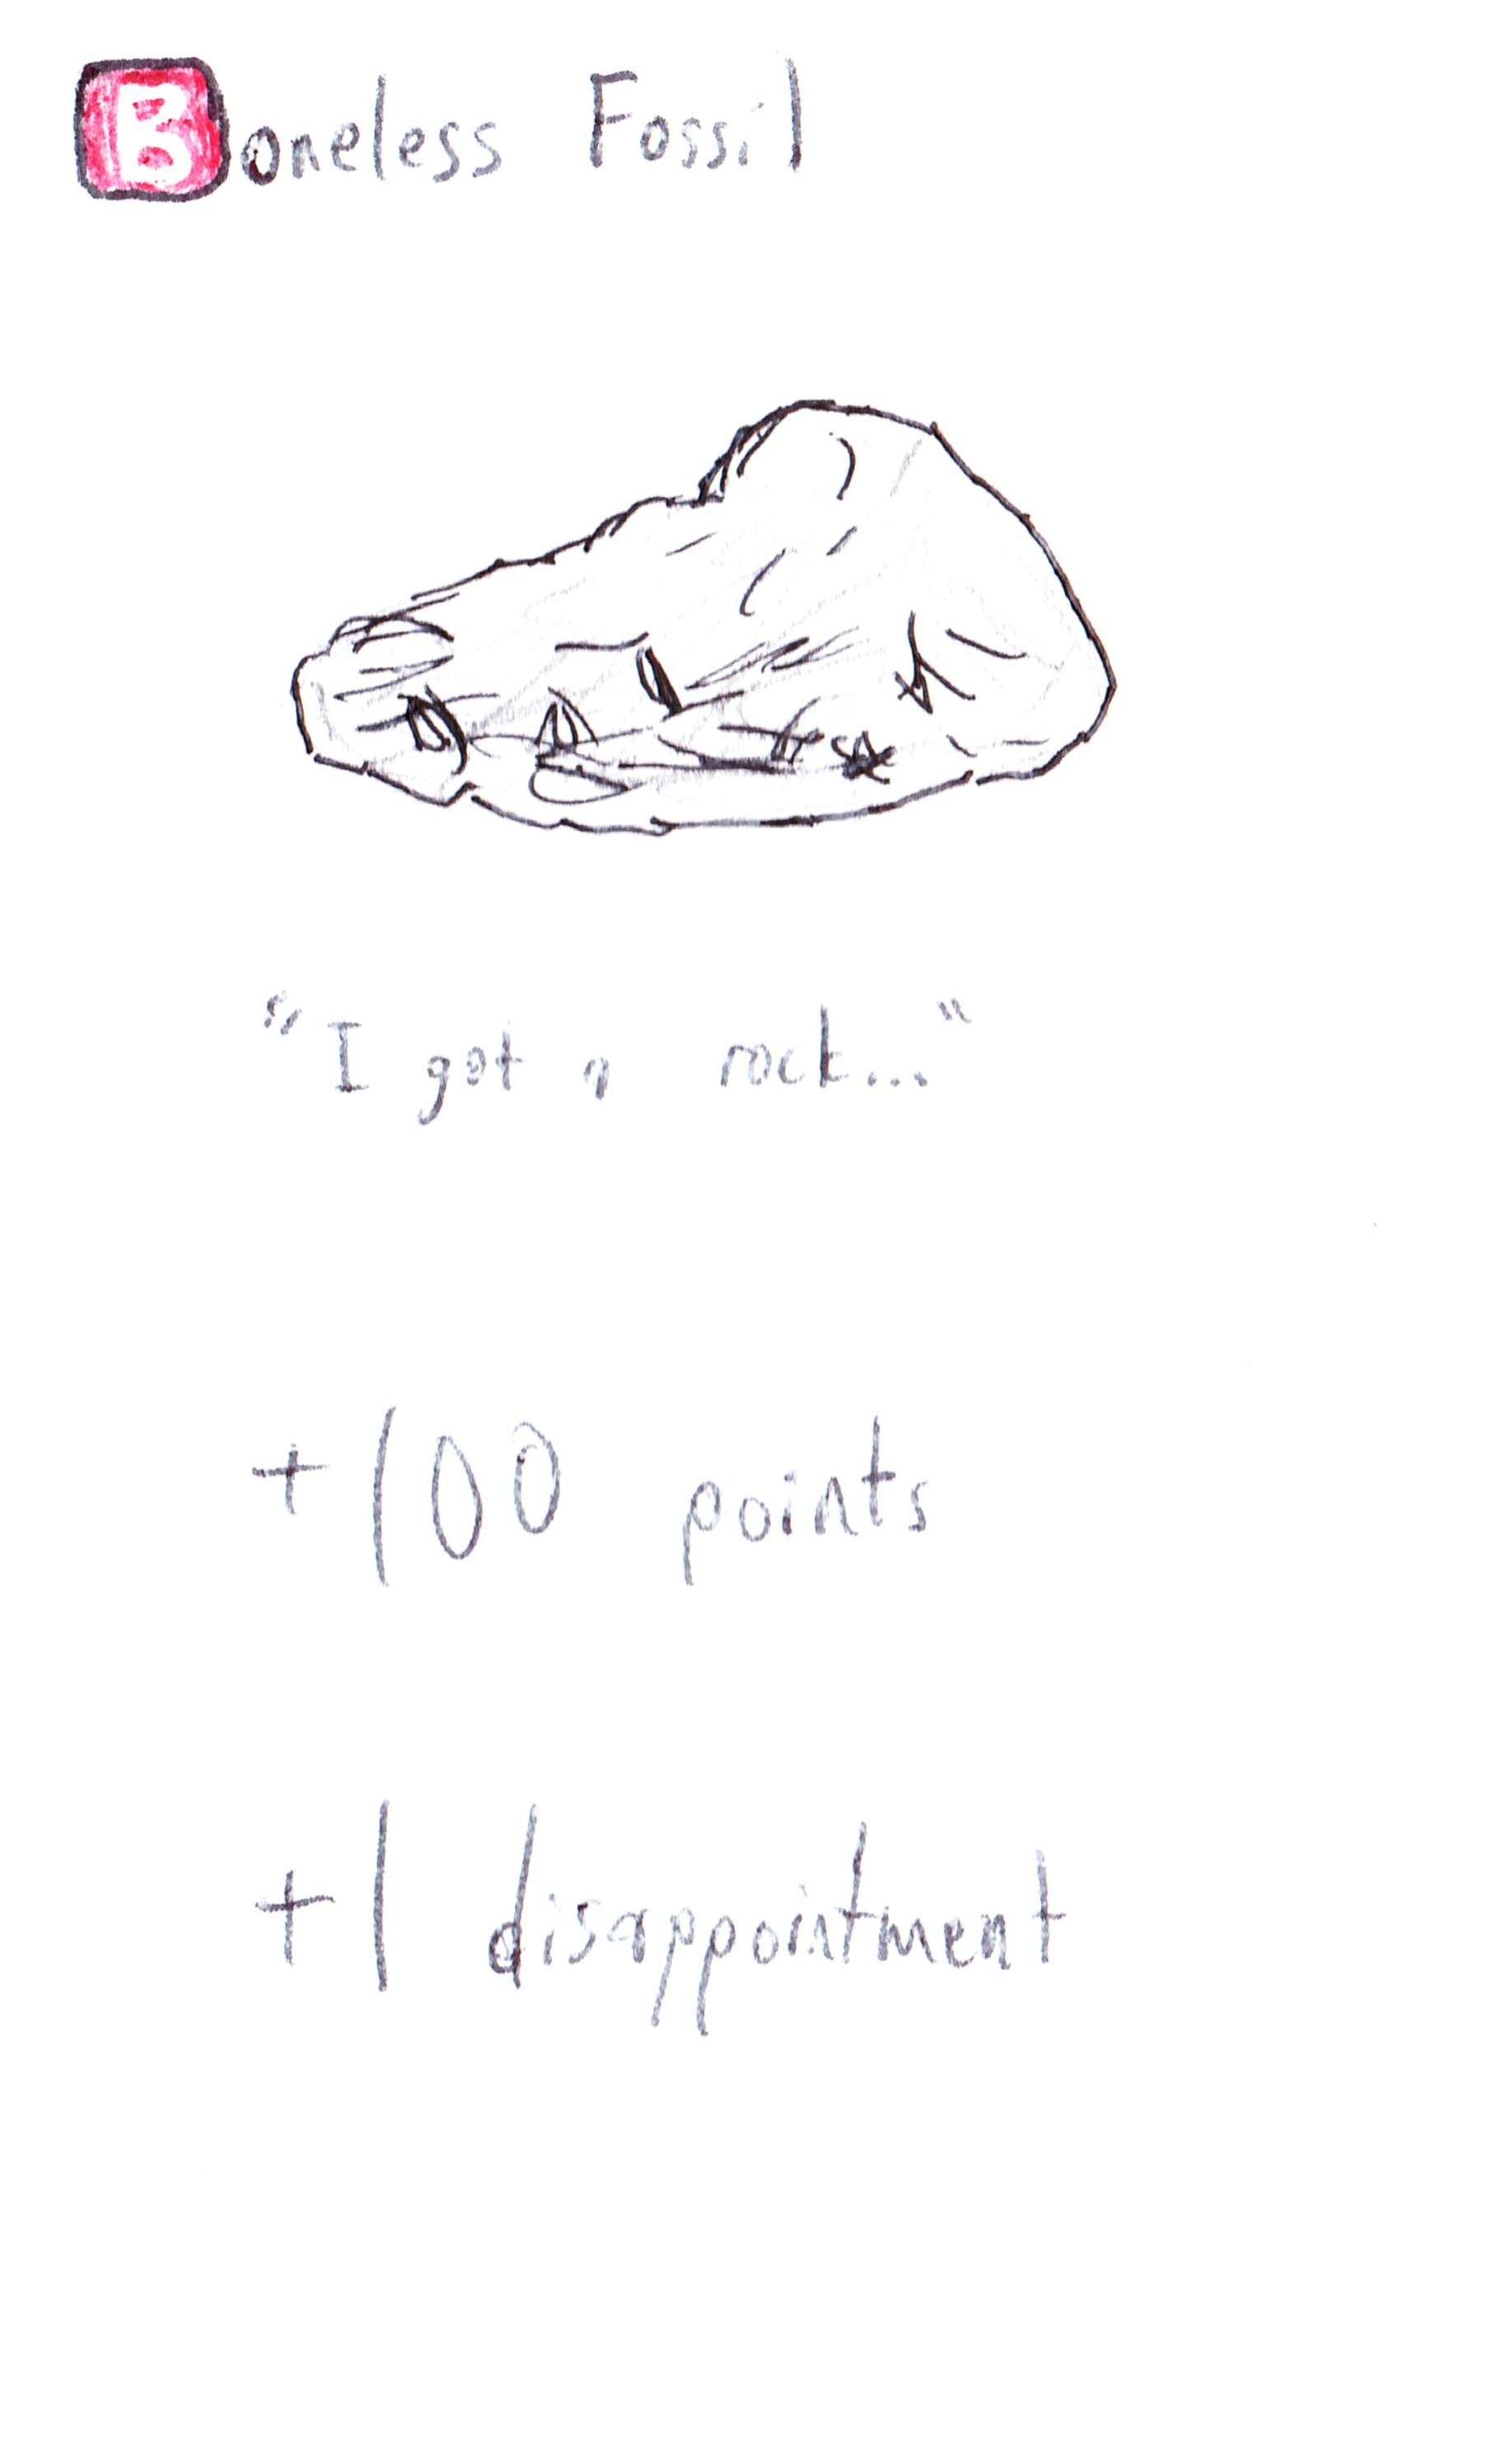 Boneless Fossil
"I got a rock..."
+100 points
+1 disappointment